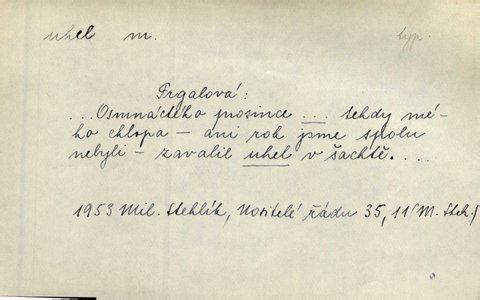 uhel m. typ.
Frgalová:
...Osmnáctého prosince ... tehdy mé-
ho chlopa – ani rok jsme spolu
nebyli – zavalil uhel v šachtě. ...
1953 Mil. Stehlík, Nositelé řádu 35, 11 (M. Steh.)